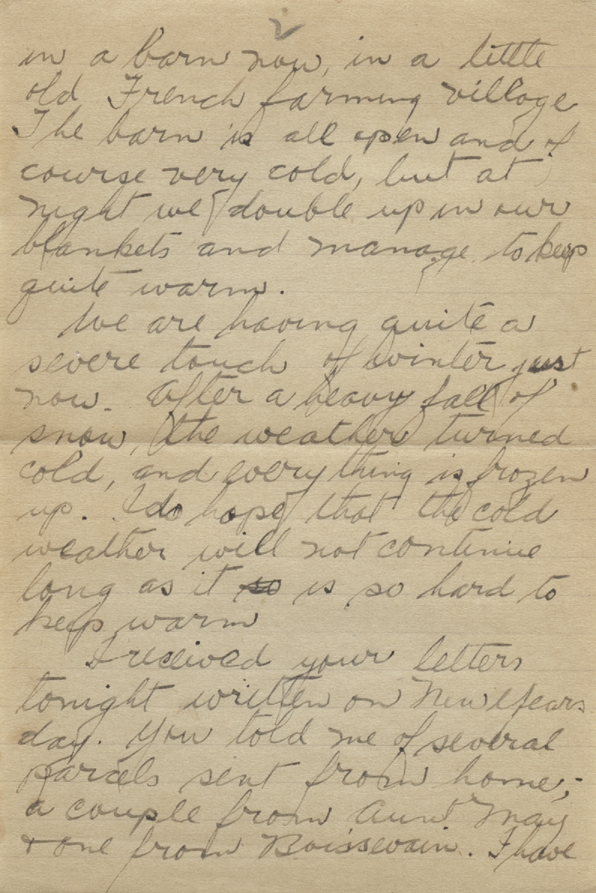 in a barn now, in a little
old French farming village
The barn is all open and of
course very cold, but at
night we double up in our
blankets and manage to keep
quite warm.
We are having quite a
severe touch of winter just
now. After a heavy fall of
snow, the weather turned
cold, and everything is frozen
up. I do hope that the cold
weather will not continue
long as it so is so hard to
keep warm
I received your letters
tonight written on New Years
day. You told me of several
parcels sent from home;-
a couple from Aunt May
+ one from Boissevain. I have